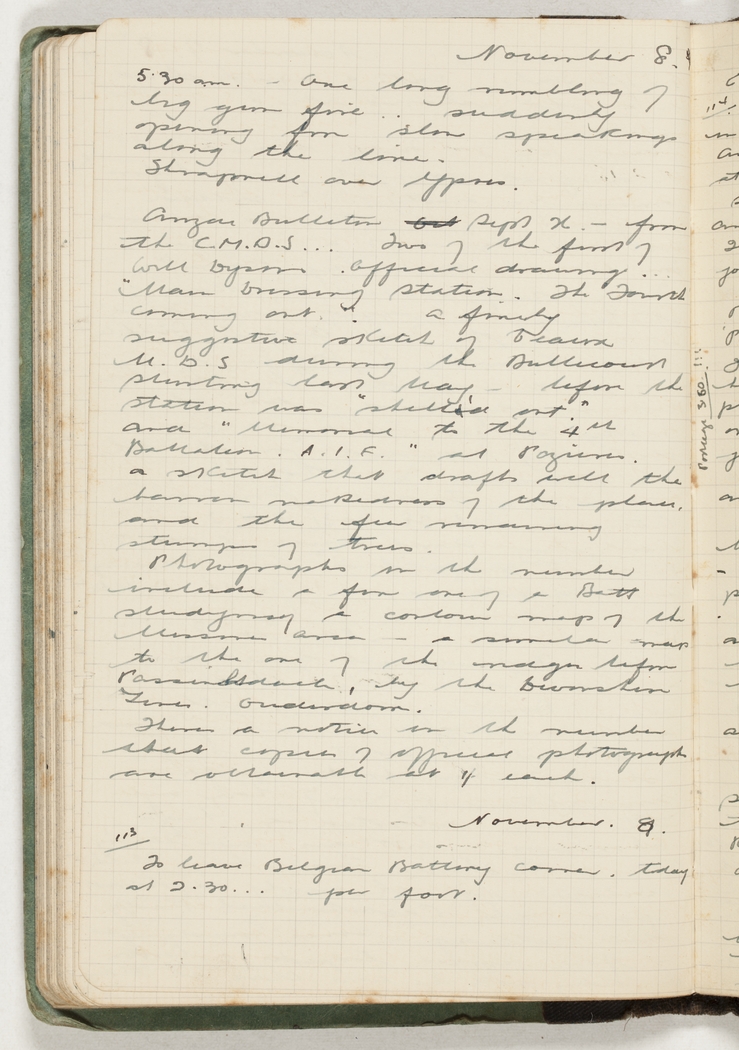 November 8.
5.30 am. - One long rumbling of
big gun fire .. suddenly
opening from slow speakings
along the line.
Shrapnell over Ypres.
Anzac Bulletin Sept 21. - from
the C.M.D.S... Two of the first of
Will Dysons . official drawing ...
"Main Dressing Station. The Fourth
coming out." a finely
suggestive sketch of Beaux
M.D.S during the Bullecourt
stunting last May - before the
station was "shelled out."
and "Memorial to the 4th
Battalion. A.I.F." at Pozieres.
a sketch that drafts well the
barren nakedness of the place,
and the few remaining
stumps of trees.
Photographs in the number
include a fine one of a Batt
studying a contour map of the
Messines area - a similar map
to the one of the ridge before
Passendaele, by the Divisional
. Ouderdom.
Theres a notice in the number
that copies of official photograph
are obtainable at 1/ each.
November. 9.
113
To leave Belgian Battery corner. today
at 2.30... per foot.
Postage 3/60. !!!
113